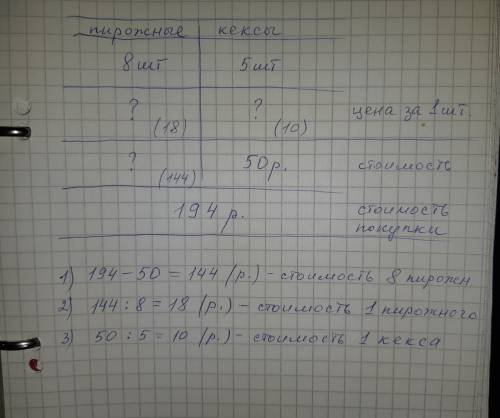 пирожные кексы
8 шт 5 шт
? ? цена за 1 шт.
(18) (10)
? 50р. стоимость
(144)
194 р. стоимость
покупки
1) 194 - 50 = 144 (р.) - стоимость 8 пирожн.
2) 144 : 8 = 18 (р.) - стоимость 1 пирожного
3) 50 : 5 = 10 (р.) - стоимость 1 кекса